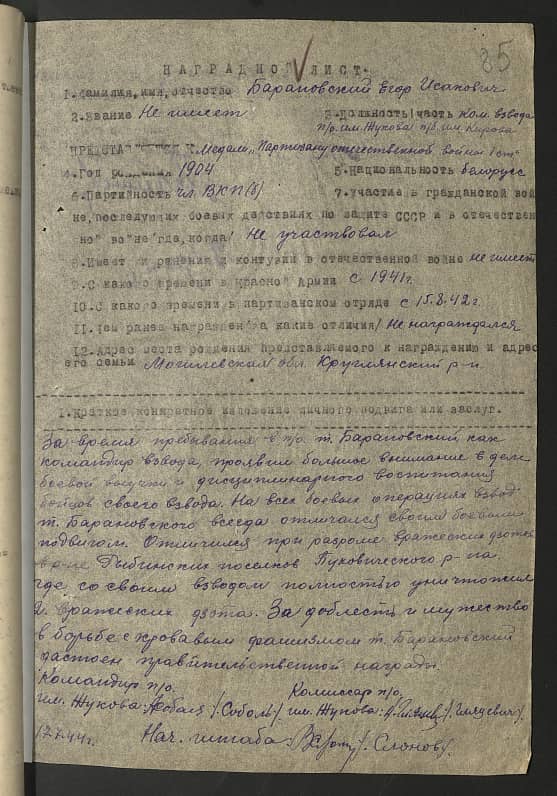 85
НАГРАДНОЙ ЛИСТ.
1. Фамилия, имя, отчество Барановский Егор Исакович
2. Звание Не имеет 3. Должность/часть ком. взвода
п/о. им. Жукова п/б. им. Кирова
К Медали "Партизану отечественной войны I ст"
4. Год рождения 1904 5. Национальность белорусс
6. Партийность чл. ВКП(б) 7. Участие в гражданской вой
не, последующих боевых действиях по защите СССР и в отечествен
но" во"не/где, когда/ Не участвовал
8. Имеет ли ранения и контузии в отечественной войне не имеет
9. С какого времени в Красной Армии с 1941г.
10. С какого времени в партизанском отряде с 15.8.42г.
11. Чем ранее награжден/за какие отличия/ Не награждался
12. Адрес места рождения представляемого к награждению и адрес
его семьи Могилевская обл. Круглянский р-н
1. Краткое конкретное изложение личного подвига или заслуг.
За время пребывания в п/о. т. Барановский как
командир взвода, проявил большое внимание в деле
боевой выучки и дисциплинарного воспитания
бойцов своего взвода. На всех боевых операциях взвод
т. Барановского всегда отличался своим боевым
подвигом. Отличился при разгроме вражеских дзотов
в р-не Рыбинских поселков Пуховического р-на.
где со своим взводом полностью уничтожил
2 вражеских дзота. За доблесть и мужество
в борьбе с кровавым фашизмом т. Барановский
достоен правительственной награды.
Командир п/о. Комиссар п/о,
им. Жукова: /Соболь/ им. Жукова:
17.7.44г. Нач. штаба: /Слонов/.